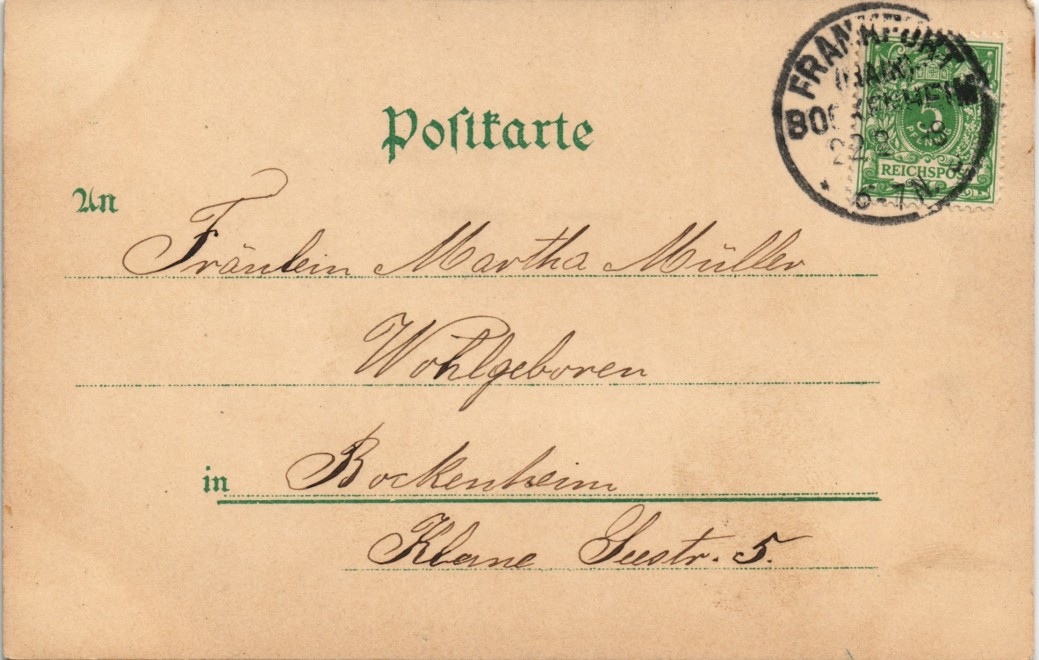 Postkarte
FRANKFURT
(MAIN)
BOCKENHEIM
5
PFENNIG
REICHSPOST
22
5-7N.
An
Fräulein Martha Müller
Wohlgeboren
in Bockenheim
Seestr. 5.